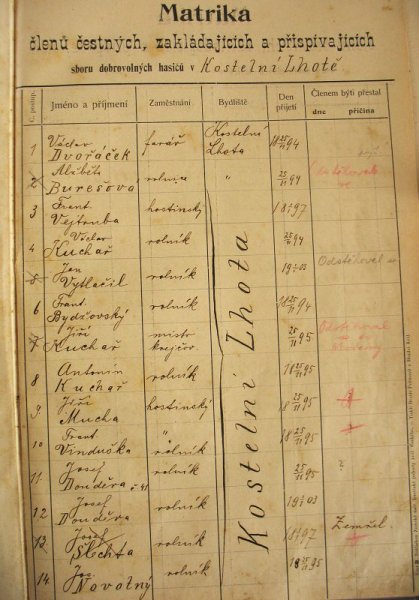 Matrika
členů čestných, zakládajících a přispívajících
sboru dobrovolných hasičů v Kostelní Lhotě
Č. postup. Jméno a příjmení Zaměstnání Bydliště Den přijetí Členem býti přestal
dne příčina
1 Václav Dvořáček farář Kostelní Lhota 18 25/11 94
2 Alžběta Burešova rolnice " 25/11 94
3 Frant. Vejtruba hostinský 18 97
4 Václav Kuchař rolník 25/6 94
5 Jan Vytlačil rolník 19 03 Odstěhoval se
6 Frant. Bydžovský rolník 18 25/11 94
7 Jiří Kuchař mistr krejčov. 25/11 95 Odstěhoval se
8 Antonín Kuchař rolník 18 25/11 95
9 Jiří Mucha hostinský 18 25/11 95
10 Frant. Vinduška " 18 25/11 95
11 Josef Donděra č. 41 rolník 25/11 95 ?
12 Josef Donděra rolník 19 03
13 Josef Šlechta rolník 18 97 Zemřel
14 Jos. Novotný rolník 18 25/11 95
Kostelní Lhota